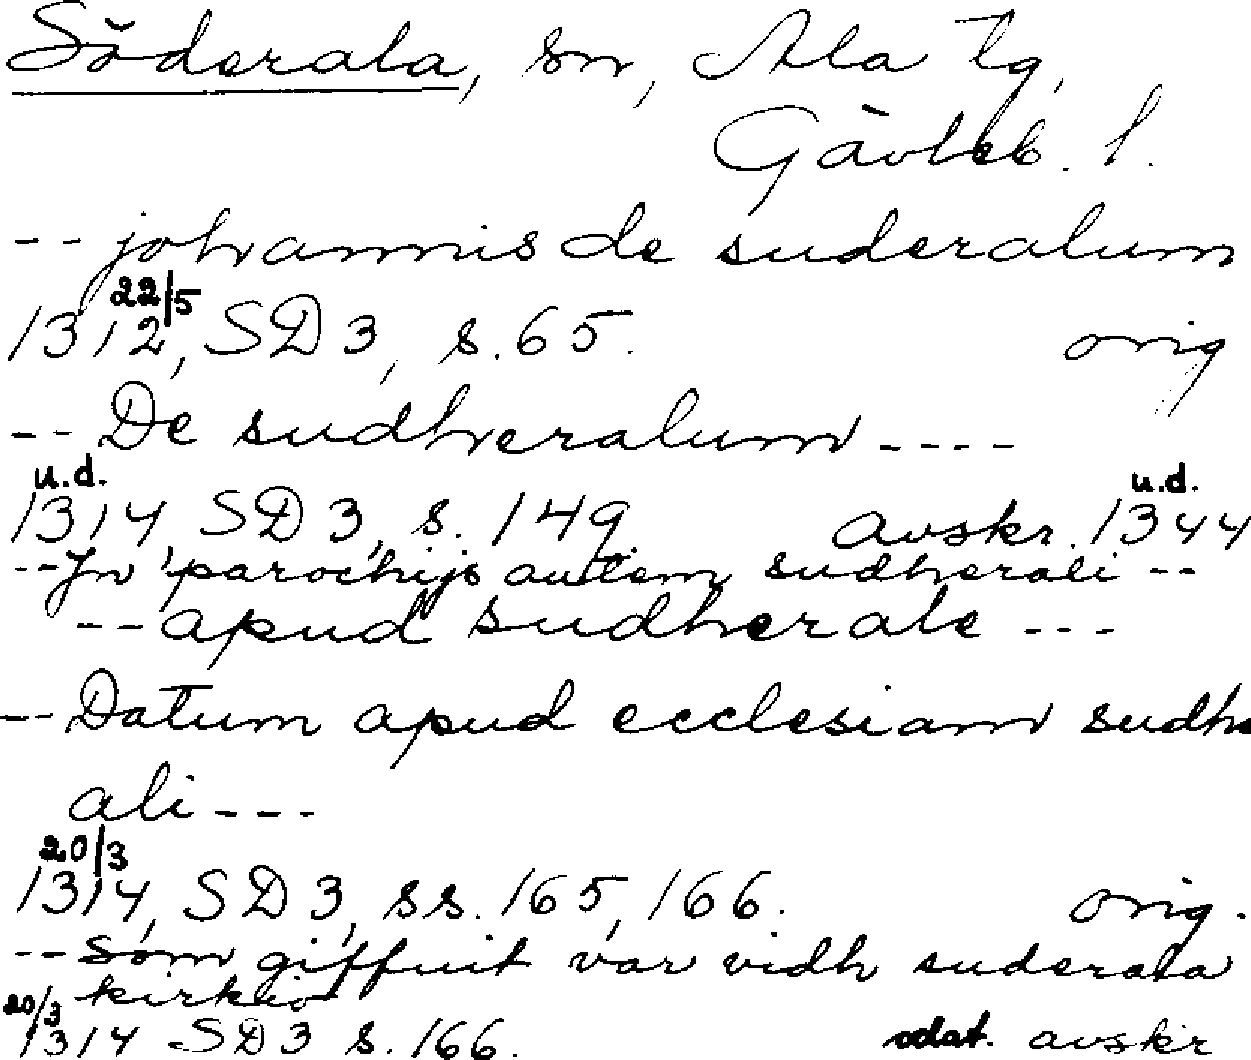 Söderala, sn, Ala tg,
Gävleb. l.
-- johannis de suderalum
22/5
1312, SD 3, s. 65. orig
-- De sudheralum ----
u.d. u.d.
1314, SD 3, s. 149. avskr. 1344
-- Jn parochijs autem sudherali --
-- apud sudherale ---
-- Datum apud ecclesiam sudher
ali ---
20/3
1314, SD 3, ss. 165, 166. orig.
-- som giffuit var vidh suderala
kirkio
20/3
1314 SD 3 s. 166. odat. avskr